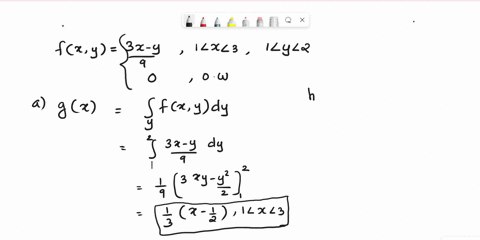 f(x,y) = { (3x-y)/9 , 1<x<3 , 1<y<2
0 , 0.w
a) g(x) = ∫_y f(x,y)dy
h
= ∫_1^2 (3x-y)/9 dy
= 1/9 (3xy - y²/2]_1^2
= 1/3 (x - 1/2) , 1<x<3